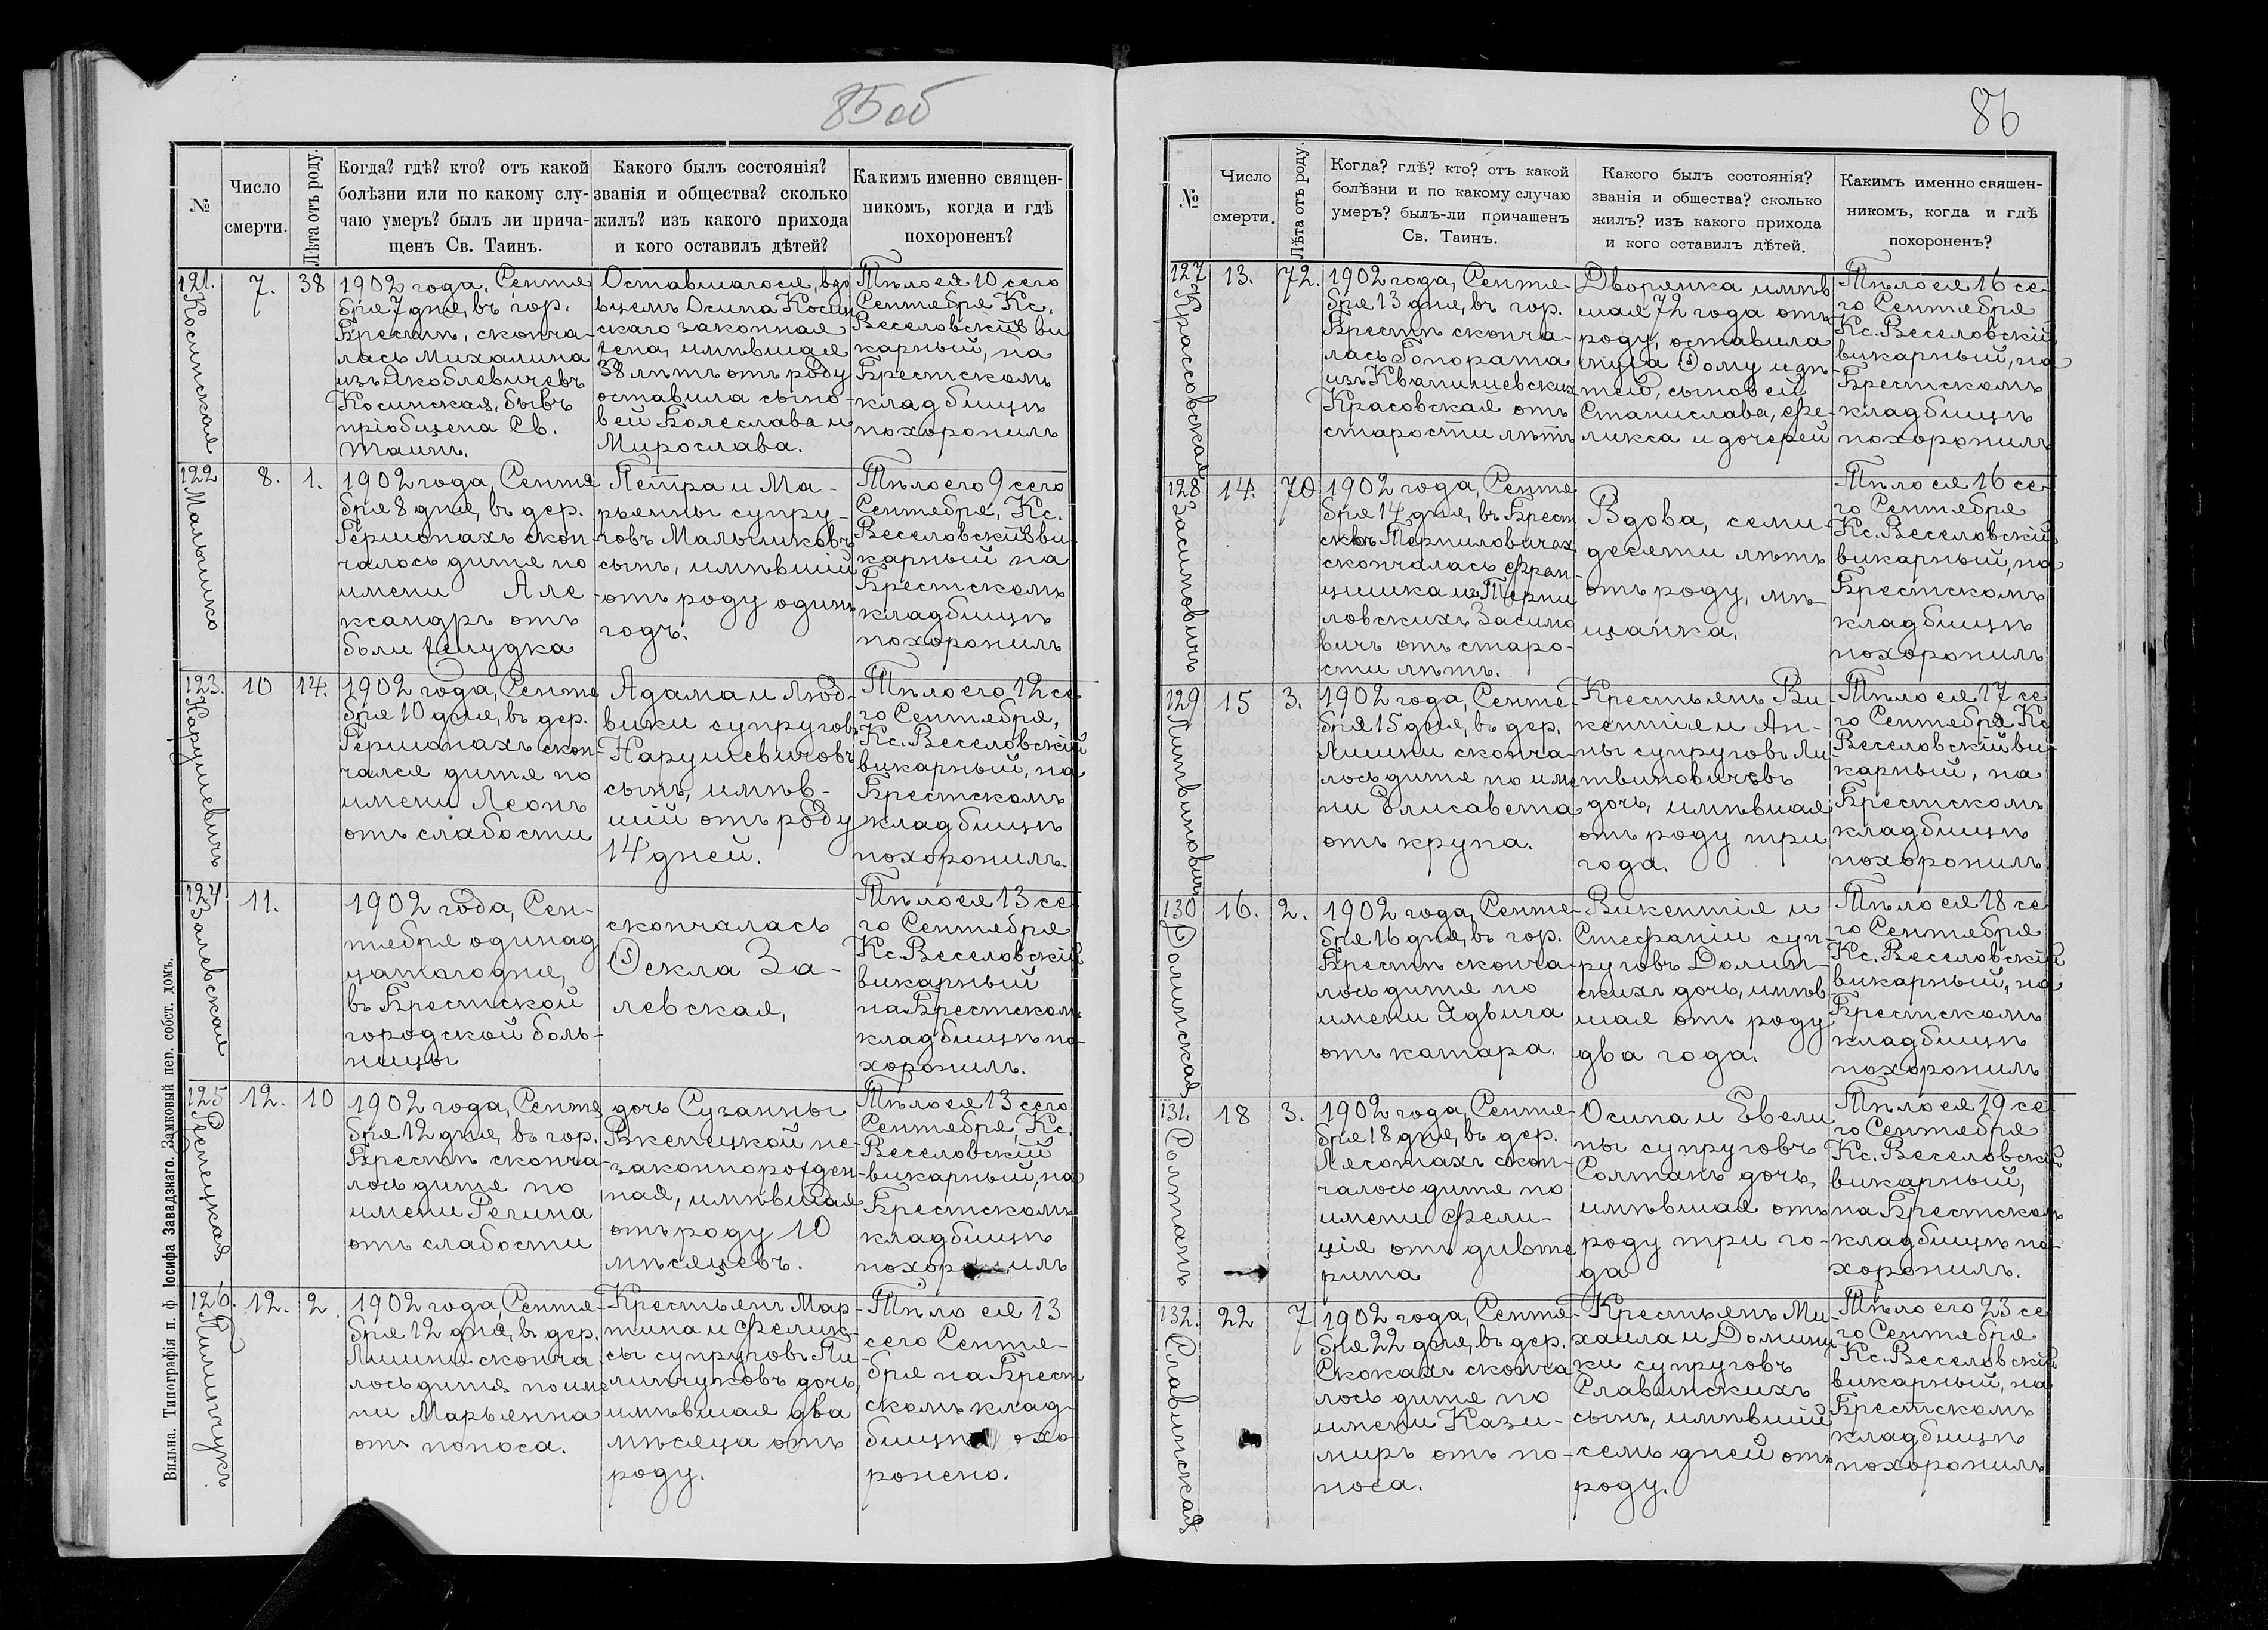 85об
№
Число
смерти.
Лѣта отъ роду.
Когда? гдѣ? кто? отъ какой
болѣзни или по какому слу-
чаю умеръ? былъ ли прича-
щенъ Св. Таинъ.
Какого былъ состоянія?
званія и общества? сколько
жилъ? изъ какого прихода
и кого оставилъ дѣтей?
Какимъ именно священ-
никомъ, когда и гдѣ
похороненъ?
121.
Косинская
7.
38
1902 года, Сентя
бря 7 дня, въ гор.
Брестѣ, сконча-
лась Михалина
изъ Якоблевичевъ
Косинская, бывъ
пріобщена Св.
Таинъ.
Оставшагося вдо
вцемъ Осипа Косин
скаго законная
жена, имѣвшая
38 лѣтъ отъ роду
оставила сыно-
вей Болеслава и
Мирослава.
Тѣло ея 10 сего
Сентября Кс.
Веселовскій ви
карный, на
Брестскомъ
кладбищѣ
похоронилъ
122
Малышко
8.
1.
1902 года, Сентя
бря 8 дня, въ дер.
Гершонахъ скон-
чалось дитя по
имени Але
ксандръ отъ
боли желудка
Петра и Ма-
рьянны супру-
говъ Малышковъ
сынъ, имѣвшій
отъ роду одинъ
годъ.
Тѣло его 9 сего
Сентября, Кс.
Веселовскій ви
карный на
Брестскомъ
кладбищѣ
похоронилъ
123.
Нарушевичъ
10
14.
1902 года, Сентя
бря 10 дня, въ дер.
Гершонахъ скон-
чался дитя по
имени Леонъ
отъ слабости
Адама и Люд-
вики супруговъ
Нарушевичовъ
сынъ, имѣв-
шій отъ роду
14 дней.
Тѣло его 12 се
го Сентября,
Кс. Веселовскій
викарный, на
Брестскомъ
кладбищѣ
похоронилъ.
124.
Залевская
11.
1902 года, Сен-
тября одинад
цатаго дня,
въ Брестской
городской боль-
ницы
скончалась
Ѳекла За-
левская,
Тѣло ея 13 се
го Сентября
Кс. Веселовскій
викарный
на Брестскомъ
кладбищѣ по-
хоронилъ.
125
12.
10
1902 года, Сентя
бря 12 дня, въ гор.
Брестѣ сконча-
лось дитя по
имени Регина
отъ слабости
дочь Сузанны
Ржепецкой не-
законнорожден
ная, имѣвшая
отъ роду 10
мѣсяцевъ.
Тѣло ея 13 сего
Сентября, Кс.
Веселовскій
викарный, на
Брестскомъ
кладбищѣ
похоронилъ
126.
Пилипчукъ.
12.
2.
1902 года, Сентя-
бря 12 дня, въ дер.
Лишни сконча
лось дитя по име
ни Марьянна
отъ поноса.
Крестьянъ Мар-
тина и Фелик-
сы супруговъ Пи
липчуковъ дочь,
имѣвшая два
мѣсяца отъ
роду.
Тѣло ея 13
сего Сентя-
бря на Брест
скомъ клад-
бищѣ похо-
ронено.
Вильна. Типографія п. ф. Іосифа Завадзкаго. Замковый пер. собст. домъ.
86
№
Число
смерти.
Лѣта отъ роду.
Когда? гдѣ? кто? отъ какой
болѣзни и по какому случаю
умеръ? былъ-ли причащенъ
Св. Таинъ.
Какого былъ состоянія?
званія и общества? сколько
жилъ? изъ какого прихода
и кого оставилъ дѣтей.
Какимъ именно священ-
никомъ, когда и гдѣ
похороненъ?
127
Красовская
13.
72.
1902 года, Сентя-
бря 13 дня, въ гор.
Брестѣ сконча-
лась Гонората
изъ Квапишевскихъ
Красовская отъ
старости лѣтъ
Дворянка имѣв
шая 72 года отъ
роду, оставила
мужа Ѳому и дѣ-
тей, сыновей
Станислава, Фе-
ликса и дочерей
Тѣло ея 16 се-
го Сентября
Кс. Веселовскій
викарный, на
Брестскомъ
кладбищѣ
похоронилъ
128
Засимовичъ
14.
70
1902 года, Сентя
бря 14 дня, въ Брест
скихъ Терпиловичах
скончалась Фран-
цишка изъ Терпи
ловскихъ Засимо
вичъ отъ старо-
сти лѣтъ.
Вдова, семи-
десяти лѣтъ
отъ роду, мѣ-
щанка.
Тѣло ея 16 се-
го Сентября
Кс. Веселовскій
викарный, на
Брестскомъ
кладбищѣ
похоронилъ
129
Литвиновичъ
15
3.
1902 года, Сентя-
бря 15 дня, въ дер.
Лишни сконча-
лось дитя по име
ни Елисавета
отъ крупа.
Крестьянъ Ви-
кентія и Ан-
ны супруговъ Ли
твиновичевъ
дочь, имѣвшая
отъ роду три
года.
Тѣло ея 17 се
го Сентября Кс
Веселовскій ви-
карный, на
Брестскомъ
кладбищѣ
похоронилъ.
130
Долинская
16.
2.
1902 года, Сентя-
бря 16 дня, въ гор.
Брестѣ сконча-
лось дитя по
имени Ядвига
отъ катара.
Викентія и
Стефаніи суп-
руговъ Долин-
скихъ дочь, имѣв
шая отъ роду
два года.
Тѣло ея 18 се-
го Сентября
Кс. Веселовскій
викарный, на
Брестскомъ
кладбищѣ
похоронилъ
131.
Солтанъ
18
3.
1902 года, Сентя-
бря 18 дня, въ дер.
Лясотахъ скон-
чалось дитя по
имени Фели-
ція отъ дивте
рита
Осипа и Евели
ны супруговъ
Солтанъ дочь,
имѣвшая отъ
роду три го-
да
Тѣло ея 19 се-
го Сентября
Кс. Веселовскій
викарный,
на Брестскомъ
кладбищѣ по-
хоронилъ.
132.
Славинская
22
7
1902 года, Сентя-
бря 22 дня, въ дер.
Скокахъ сконча
лось дитя по
имени Кази-
миръ отъ по-
носа.
Крестьянъ Ми-
хаила и Домини
ки супруговъ
Славинскихъ
сынъ, имѣвшій
семь дней отъ
роду.
Тѣло его 23 се
го Сентября
Кс. Веселовскій
викарный, на
Брестскомъ
кладбищѣ
похоронилъ